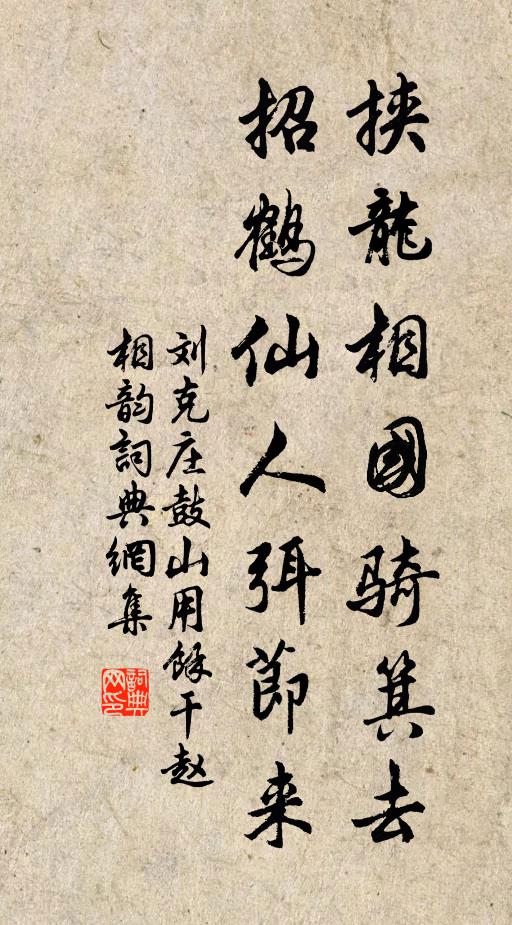 挟龍相國骑箕去
招鹤仙人弭節来
刘克庄鼓山用馀干赵
相韵詞典網集
詞典网印